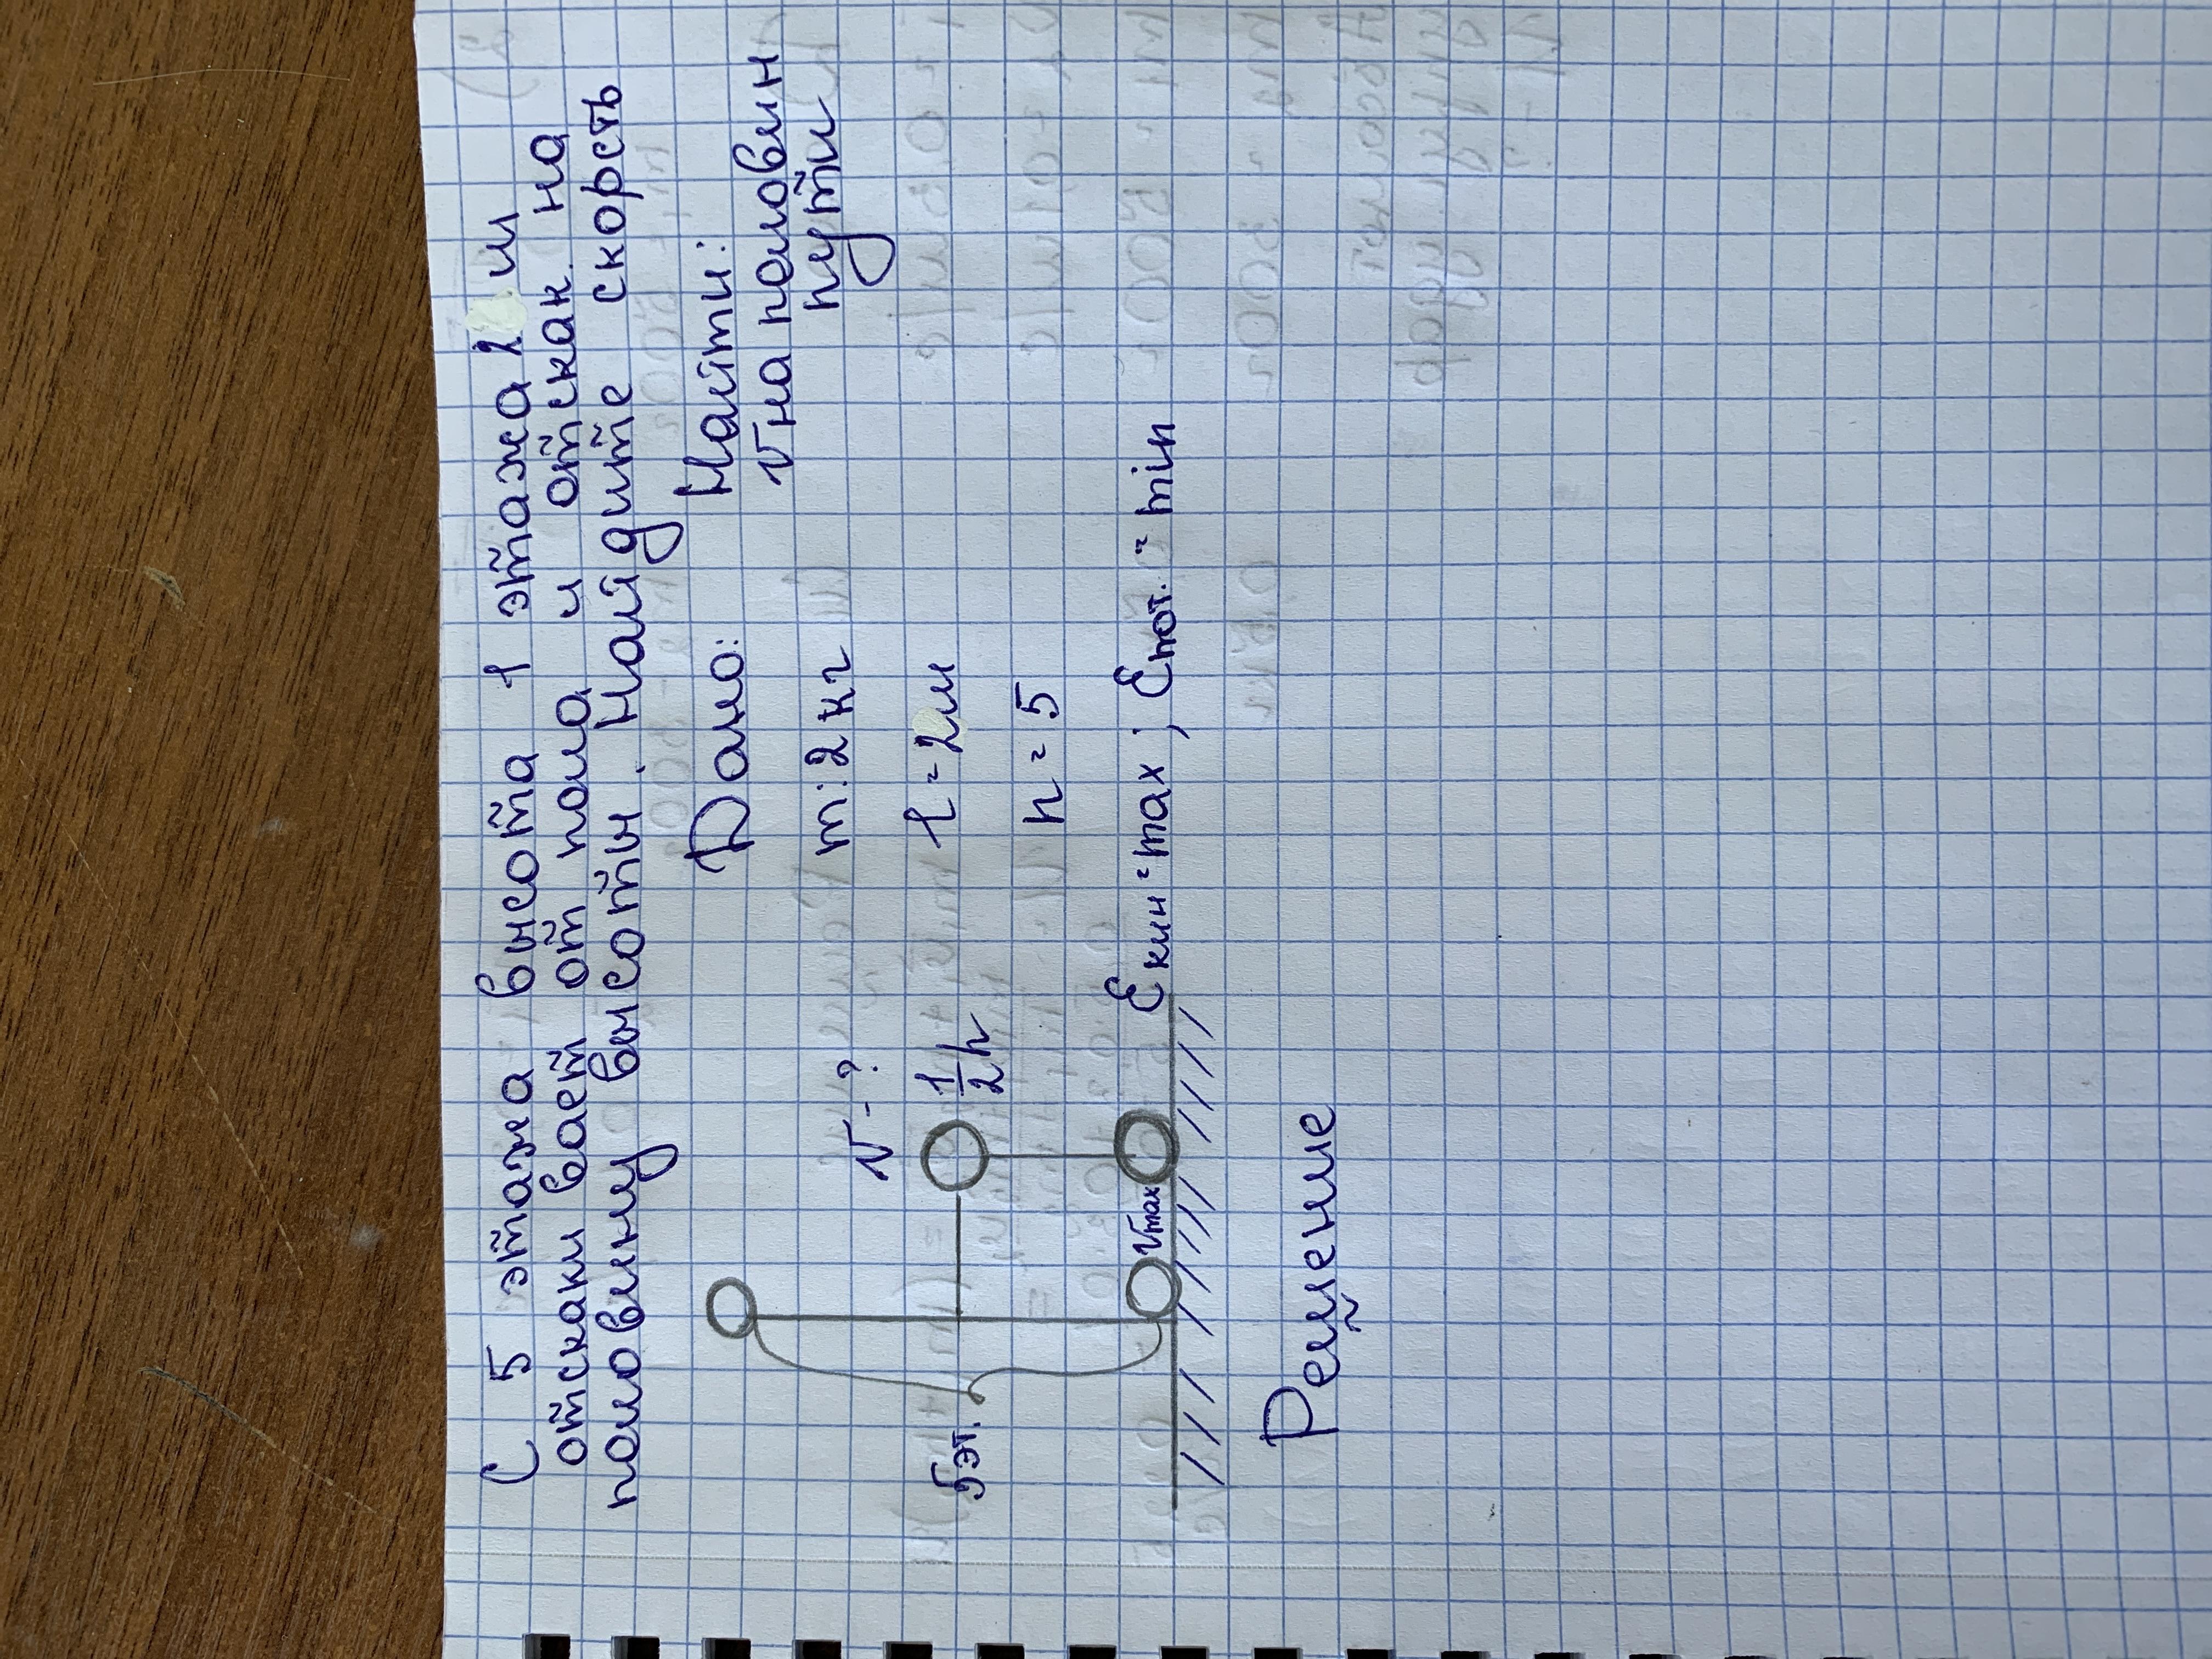 С 5 этажа высота 1 этажа 2 м
отскакивает от пола и отскак. на
половину высоты. Найдите скорость
Дано:
Найти:
m: 2 кг
v на половин
пути
h = 2м
n = 5
v - ?
1/2 h
5эт.
vmax
Eкин = max ; Eпот. = min
Решение